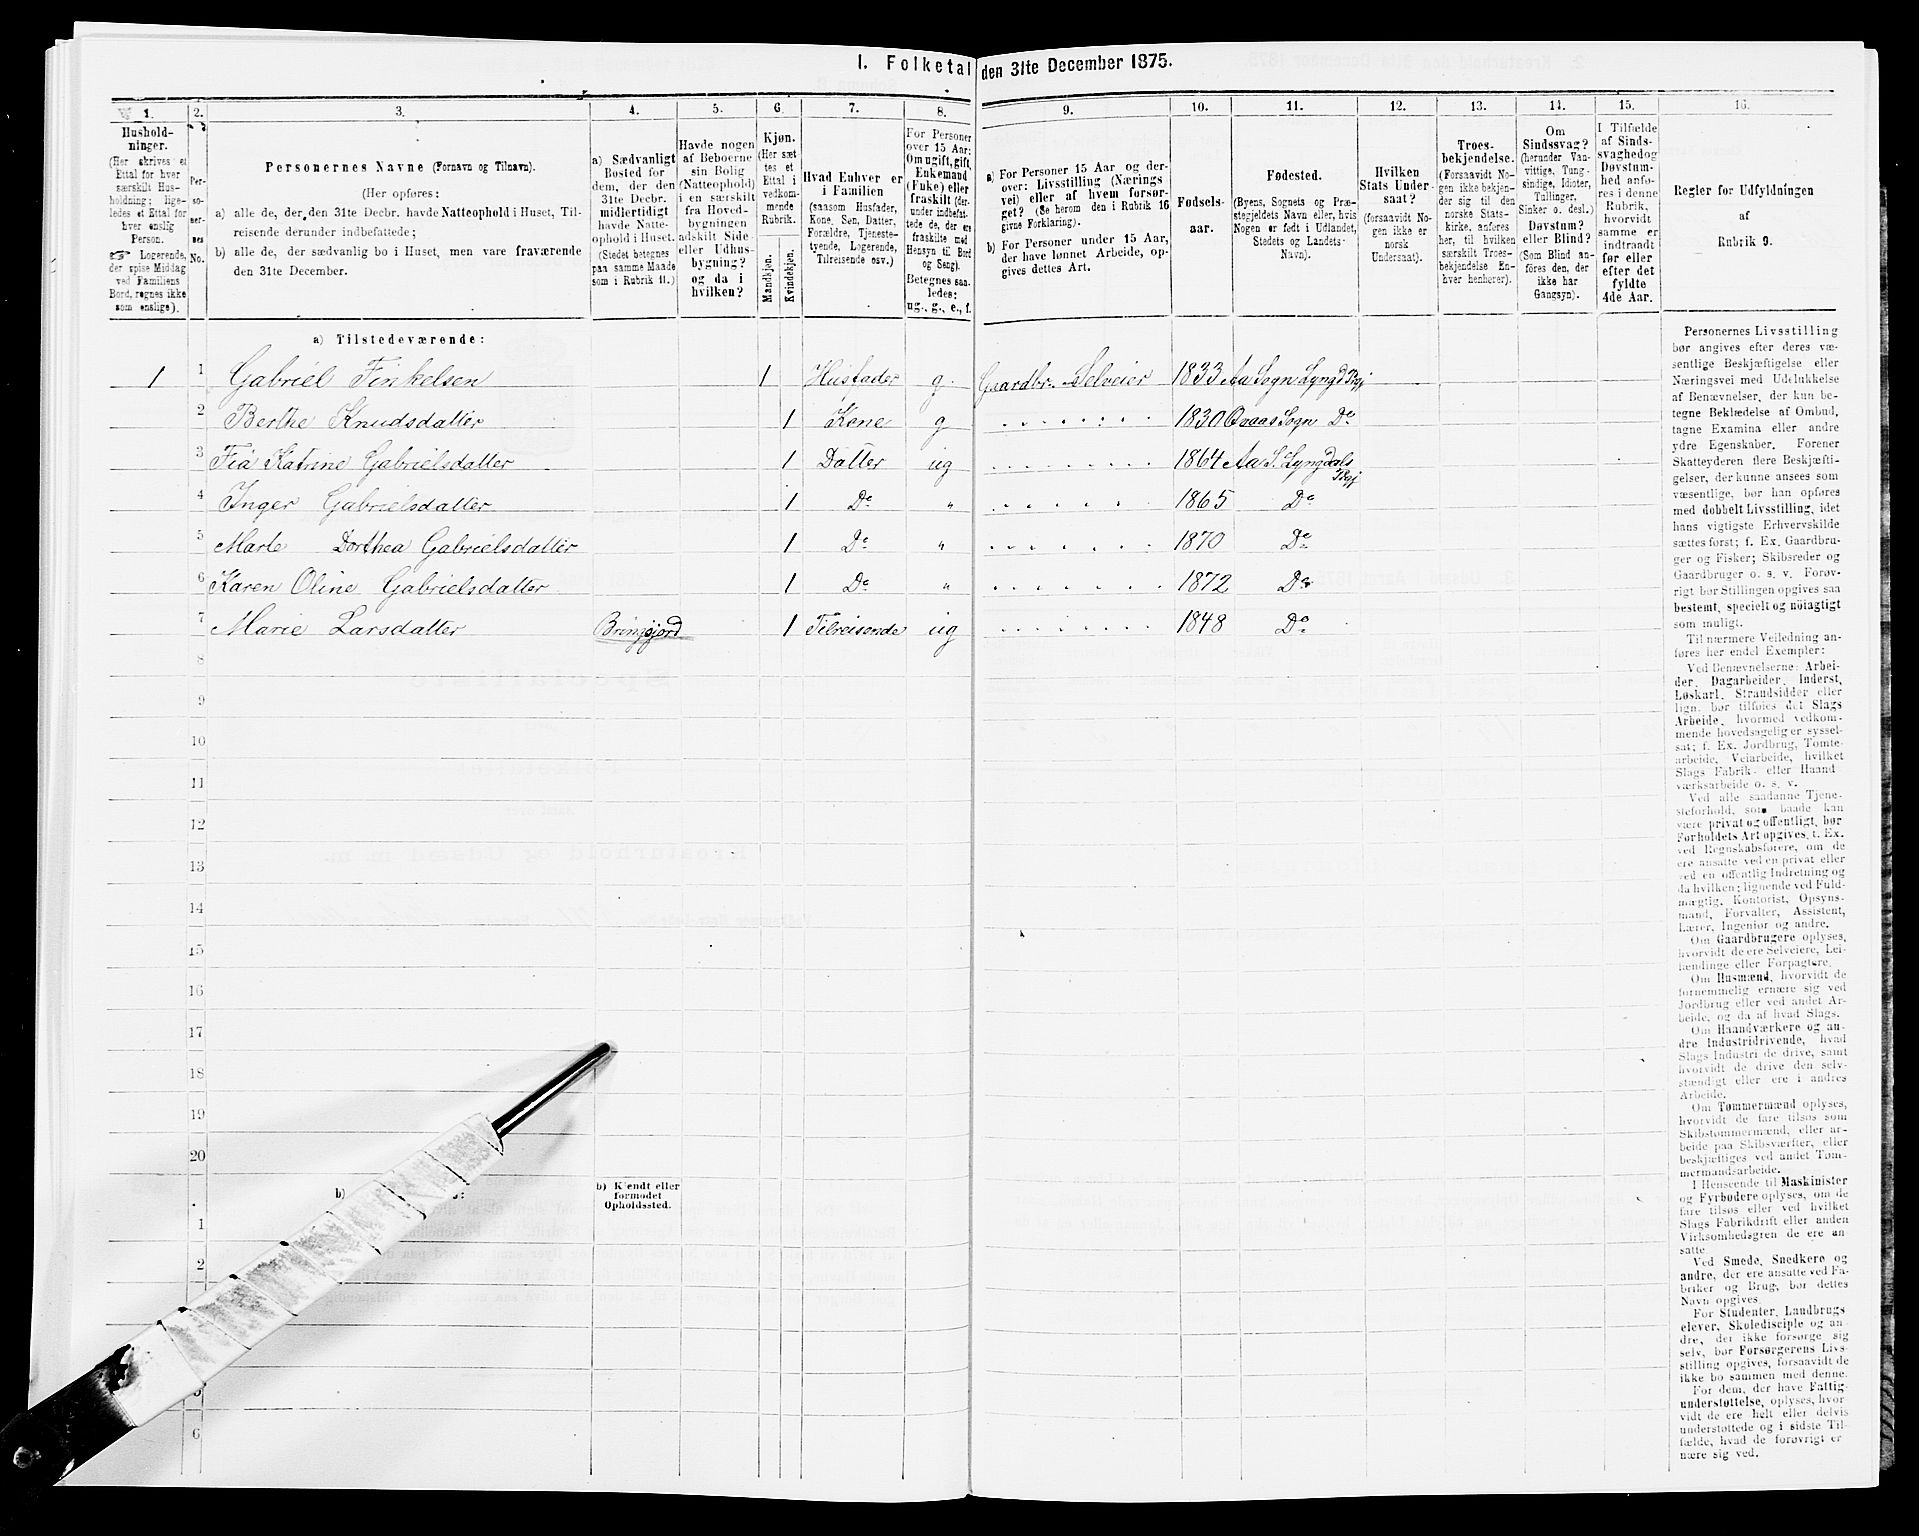 I. Folketal den 31te December 1875.
1.
2.
3.
4.
5.
6.
7.
8.
9.
10.
11.
12.
13.
14.
15.
16.
Hushold-
ninger.
(Her skrives et
Ettal for hver
særskilt Hus-
holdning; lige-
ledes et Ettal for
hver enslig
Person.
☞ Logerende,
der spise Middag
ved Familiens
Bord, regnes ikke
som enslige).
Per-
so-
ner-
nes
No.
Personernes Navne (Fornavn og Tilnavn).
(Her opføres:
a) alle de, der den 31te Decbr. havde Natteophold i Huset, Til-
reisende derunder indbefattede;
b) alle de, der sædvanlig bo i Huset, men vare fraværende
den 31te December.
a) Sædvanligt
Bosted for
dem, der den
31te Decbr.
midlertidigt
havde Natte-
ophold i Huset.
(Stedet betegnes
paa samme Maade
som i Rubrik 11.)
Havde nogen
af Beboerne
sin Bolig
(Natteophold)
i en særskilt
fra Hoved-
bygningen
adskilt Side-
eller Udhus-
bygning?
og da i
hvilken?
Kjøn.
(Her sæt
tes et
Ettal i
vedkom-
mende
Rubrik.
Mandkjøn.
Kvindekjøn.
Hvad Enhver er
i Familien
(saasom Husfader,
Kone, Søn, Datter,
Forældre, Tjeneste-
tyende, Logerende,
Tilreisende osv.)
For Personer
over 15 Aar:
Om ugift, gift,
Enkemand
(Enke) eller
fraskilt (der-
under indbefat-
tede de, der ere
fraskilte med
Hensyn til Bord
og Seng).
Betegnes saa-
ledes:
ug., g., e., f.
a) For Personer 15 Aar og der-
over: Livsstilling (Nærings-
vei) eller af hvem forsør-
get? (Se herom den i Rubrik 16
givne Forklaring).
b) For Personer under 15 Aar,
der have lønnet Arbeide, op-
gives dettes Art.
Fødsels-
aar.
Fødested.
(Byens, Sognets og Præ-
stegjeldets Navn eller, hvis
Nogen er født i Udlandet,
Stedets og Landets
Navn).
Hvilken
Stats Under-
saat?
(forsaavidt No-
gen ikke er
norsk
Undersaat).
Troes-
bekjendelse.
(Forsaavidt No-
gen ikke bekjen-
der sig til den
norske Stats-
kirke, anføres
her, til hvilken
særskilt Troes-
bekjendelse En-
hver henhører).
Om
Sindssvag?
(herunder Van-
vittige, Tung-
sindige, Idioter,
Tullinger,
Sinker o. desl.)
Døvstum?
eller Blind?
(Som Blind an-
føres den, der
ikke har
Gangsyn).
I Tilfælde
af Sinds-
svaghed og
Døvstum-
hed anfø-
res i denne
Rubrik,
hvorvidt
samme er
indtraadt
før eller
efter det
fyldte
4de Aar.
Regler for Udfyldningen
af
Rubrik 9.
a) Tilstedeværende:
1 1 Gabriel Finkelsen 1 Husfader g. Gaardbr. Selveier 1833 Aa Sogn Lyngd Pgj
2 Berthe Knudsdatter 1 Kone g 1830 Qvaas Sogn Do
3 Fia Katrine Gabrielsdatter 1 Datter ug 1864 Aa S. Lyngdals Pgj
4 Inger Gabrielsdatter 1 Do " 1865 Do
5 Marte Dorthea Gabrielsdatter 1 Do " 1870 Do
6 Karen Oline Gabrielsdatter 1 Do " 1872 Do
7 Marie Larsdatter Bringsjord 1 Tilreisende ug 1848 Do
8
9
10
11
12
13
14
15
16
17
18
19
20
b)
b) Kjendt eller
formodet
Opholdssted.
1
2
6
Personernes Livsstilling
bør angives efter deres væ-
sentlige Beskjæftigelse eller
Næringsvei med Udelukkelse
af Benævnelser, der kun be-
tegne Beklædelse af Ombud,
tagne Examina eller andre
ydre Egenskaber. Forener
Skatteyderen flere Beskjæfti-
gelser, der kunne ansees som
væsentlige, bør han opføres
med dobbelt Livsstilling, idet
hans vigtigste Erhvervskilde
sættes først; f. Ex. Gaardbru-
ger og Fisker; Skibsreder og
Gaardbruger o. s. v. Forøv-
rigt bør Stillingen opgives saa
bestemt, specielt og nøiagtigt
som muligt.
Til nærmere Veiledning an-
føres her endel Exempler:
Ved Benævnelserne: Arbei-
der, Dagarbeider, Inderst,
Løskarl, Strandsidder eller
lign. bør tilføies det Slags
Arbeide, hvormed vedkom-
mende hovedsagelig er syssel-
sat; f. Ex. Jordbrug, Tomte-
arbeide, Veiarbeide, hvilket
Slags Fabrik- eller Haand-
værksarbeide o. s. v.
Ved alle saadanne Tjene-
steforhold, som baade kan
være privat og offentligt, bør
Forholdets Art opgives, t. Ex.
ved Regnskabsførere, om de
ere ansatte ved en privat eller
ved en offentlig Indretning og
da hvilken; lignende ved Fuld-
mægtig, Kontorist, Opsyns-
mand, Forvalter, Assistent,
Lærer, Ingeniør og andre.
Om Gaardbrugere oplyses,
hvorvidt de ere Selveiere, Lei-
lændinge eller Forpagtere.
Om Husmænd, hvorvidt de
fornemmelig ernære sig ved
Jordbrug eller ved andet Ar-
beide, og da af hvad Slags.
Om Haandværkere og an-
dre Industridrivende, hvad
Slags Industri de drive, samt
hvorvidt de drive den selv-
stændigt eller ere i andres
Arbeide.
Om Tømmermænd oplyses,
hvorvidt de fare tilsøs som
Skibstømmermænd, eller ar-
beide paa Skibsværfter, eller
beskjæftiges ved andet Tøm-
mermandsarbeide.
I Henseende til Maskinister
og Fyrbødere oplyses, om de
fare tilsøs eller ved hvilket
Slags Fabrikdrift eller anden
Virksomhedsgren de ere an-
satte.
Ved Smede, Snedkere og
andre, der ere ansatte ved Fa-
briker og Brug, bør dettes
Navn opgives.
For Studenter, Landbrugs-
elever, Skoledisciple og an-
dre, der ikke forsørge sig
selv, bør Forsørgerens Livs-
stilling opgives, forsaavidt de
ikke bo sammen med denne.
For dem, der have Fattig-
understøttelse, oplyses, hvor-
vidt de ere helt eller delvis
understøttede og i sidste Til-
fælde, hvad de forøvrigt er-
nære sig ved.